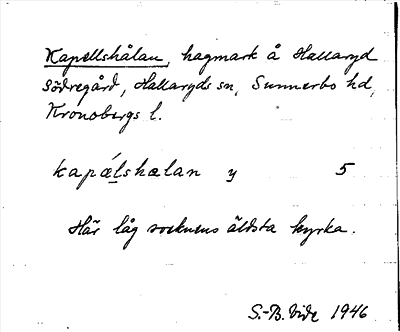 Kapellshålan, hagmark å Hallaryd
Södregård, Hallaryds sn, Sunnerbo hd,
Kronobergs l.
kapǽlshælan y 5
Här låg socknens äldsta kyrka.
S.-B. Vide 1946